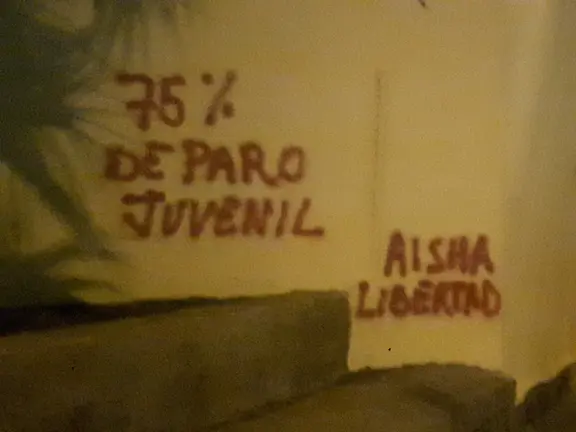 75%
DE PARO
JUVENIL
AISHA
LIBERTAD